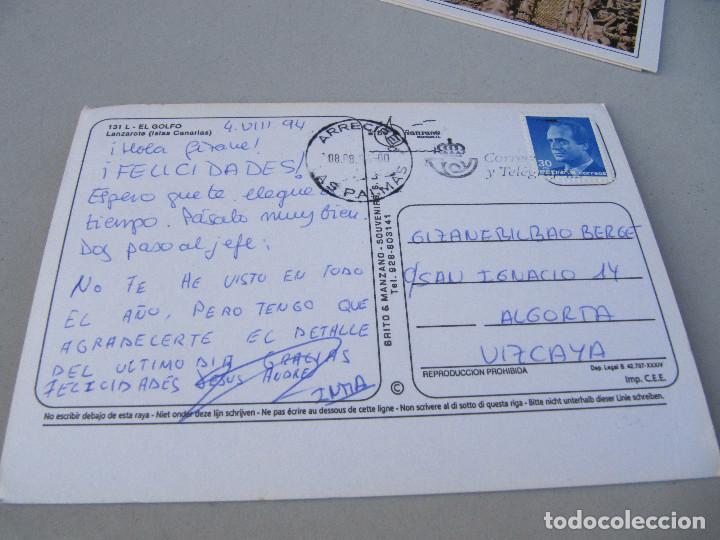 131 L - EL GOLFO
Lanzarote (Islas Canarias)
4.VIII 94
¡Hola Gizane!
¡FELICIDADES!
Espero que te llegue a
tiempo. Pásalo muy bien.
Doy paso al jefe:
NO TE HE VISTO EN TODO
EL AÑO, PERO TENGO QUE
AGRADECERTE EL DETALLE
DEL ULTIMO DIA GRACIAS
FELICIDADES JESUS ANDRE
INMA
ARRECIFE
08.08.
LAS PALMAS
Correos
y Telég
30
ESPAÑA CORREOS
BRITO & MANZANO - SOUVENIRS, S.L.
Tel. 928-803141
©
GIZANE BILBAO BERGE
C/SAN IGNACIO 14
ALGORTA
VIZCAYA
REPRODUCCION PROHIBIDA
Dep. Legal B. 42.797-XXXIV
Imp. C.E.E.
No escribir debajo de esta raya - Niet onder deze lijn schrijven - Ne pas écrire au dessous de cette ligne - Non scrivere al di sotto di questa riga - Bitte nicht unterhalb dieser Linie schreiben.
todocoleccion.net